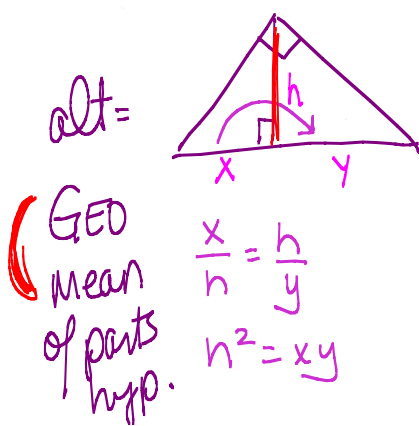 alt=
h
x y
GEO
mean
of parts
hyp.
x/h = h/y
h² = xy